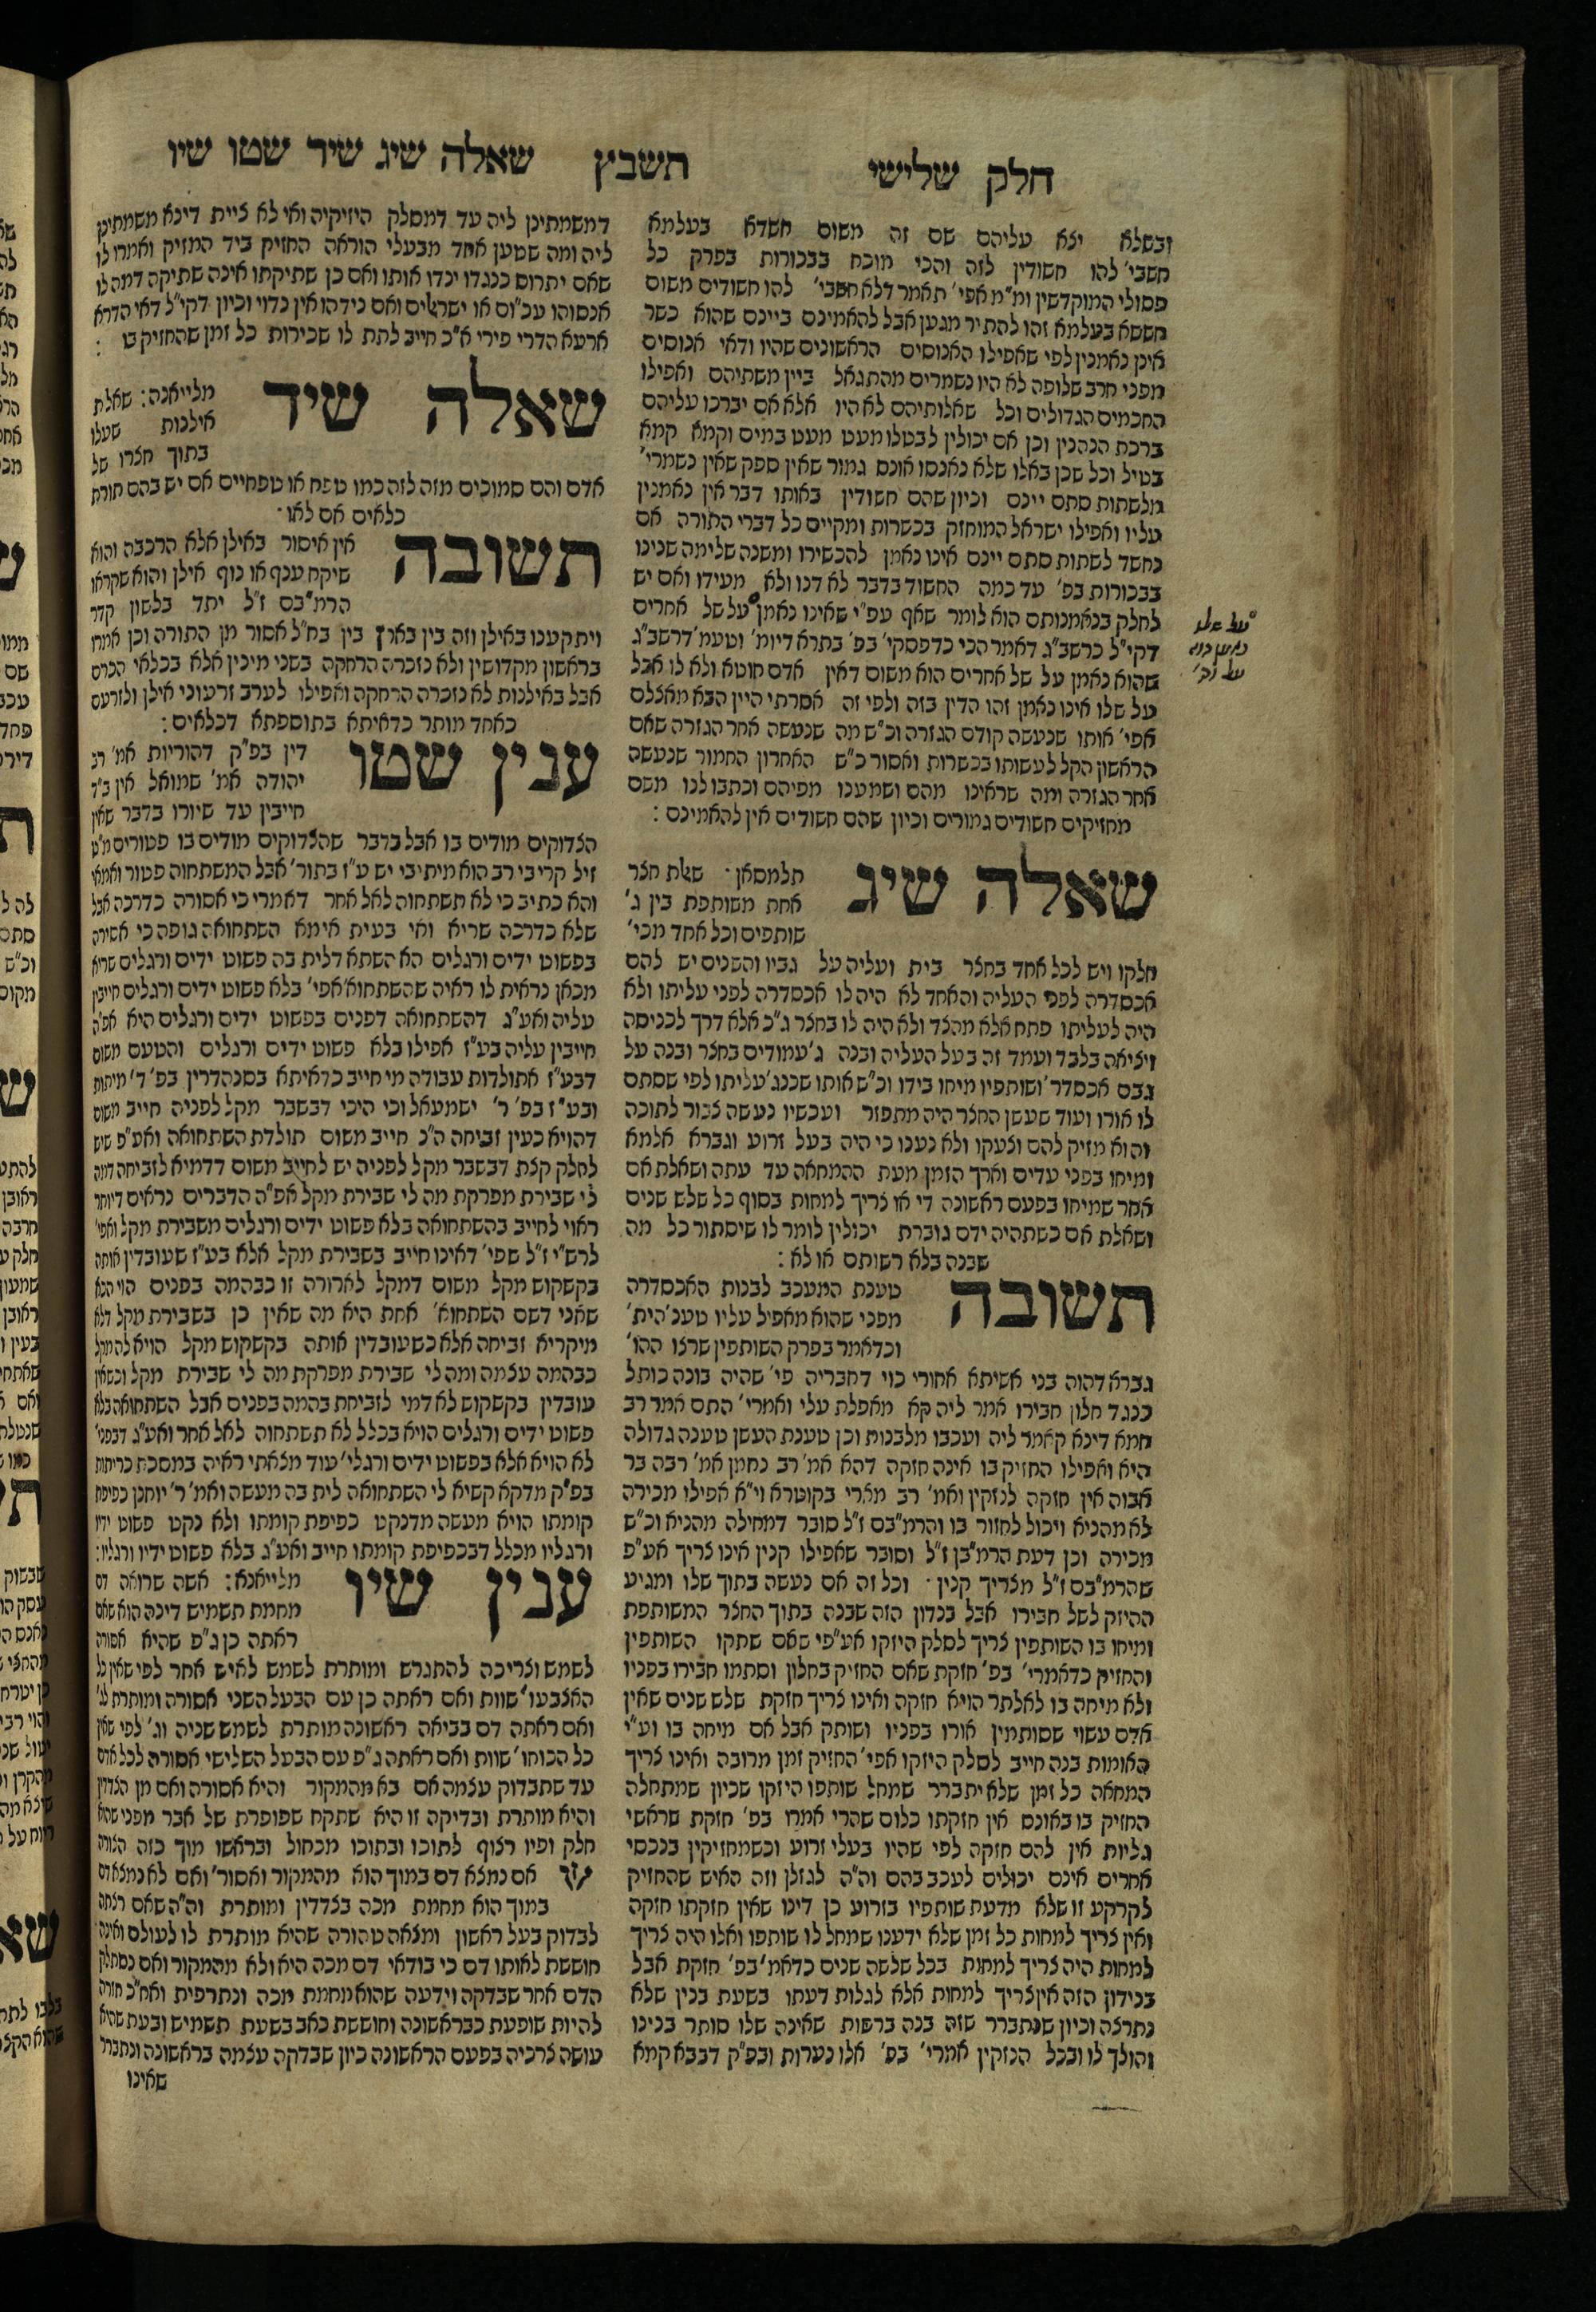 חלק שלישי תשבץ שאלה שיג שיד שטו שיו
ובשלא יצא עליהם שם זה משום חשדא בעלמא
חשבי' להו חשודין לזה והכי מוכח בבכורות בפרק כל
פסולי המוקדשין ומ"מ אפי' תאמר דלא חשבי' להו חשודים משום
חששא בעלמא זהו להתיר מגען אבל להאמינם ביינם שהוא כשר
אינן נאמנין לפי שאפילו האנוסים הראשונים שהיו ודאי אנוסים
מפני חרב שלופה לא היו נשמרים מהתגאל ביין משתיהם ואפילו
החכמים הגדולים וכל שאלותיהם לא היו אלא אם יברכו עליהם
ברכת הנהנין וכן אם יכולין לבטלו מעט מעט במים וקמא קמא
בטיל וכל שכן באלו שלא נאנסו אונס גמור שאין ספק שאין נשמרי'
מלשתות סתם יינם וכיון שהם חשודין באותו דבר אין נאמנין
עליו ואפילו ישראל המוחזק בכשרות ומקיים כל דברי התורה אם
נחשד לשתות סתם יינם אינו נאמן להכשירו ומשנה שלימה שנינו
בבכורות בפ' עד כמה החשוד בדבר לא דנו ולא מעידו ואם יש
לחלק בנאמנותם הוא לומר שאף עפ"י שאינו נאמן על של אחרים
דקי"ל כרשב"ג דאמר הכי כדפסקי' בפ' בתרא דיומ' וטעמ' דרשב"ג
שהוא נאמן על של אחרים הוא משום דאין אדם חוטא ולא לו אבל
על שלו אינו נאמן זהו הדין בזה ולפי זה אסרתי היין הבא מאצלם
אפי' אותו שנעשה קודם הגזרה וכ"ש מה שנעשה אחר הגזרה שאם
הראשון הקל לעשותו בכשרות ואסור כ"ש האחרון החמור שנעשה
אחר הגזרה ומה שראינו מהם ושמענו מפיהם וכתבו לנו משם
מחזיקים חשודים גמורים וכיון שהם חשודים אין להאמינם :
שאלה שיג תלמסאן · שאלת חצר
אחת משותפת בין ג'
שותפים וכל אחד מכי'
חלקו ויש לכל אחד בחצר בית ועליה על גביו והשנים יש להם
אכסדרה לפני העליה והאחד לא היה לו אכסדרה לפני עליתו ולא
היה לעליתו פתח אלא מהצד ולא היה לו בחצר ג"כ אלא דרך לכניסה
ויציאה בלבד ועמד זה בעל העליה ובנה ג' עמודים בחצר ובנה על
גבם אכסדר' ושותפיו מיחו בידו וכ"ש אותו שכנג' עליתו לפי שסתם
לו אורו ועוד שעשן החצר היה מתפזר ועכשיו נעשה צבור לתוכה
והוא מזיק להם וצעקו ולא נענו כי היה בעל זרוע וגברא אלמא
ומיחו בפני עדים וארך הזמן מעת ההמחאה עד עתה ושאלת אם
אחר שמיחו בפעם ראשונה די או צריך למחות בסוף כל שלש שנים
ושאלת אם כשתהיה ידם גוברת יכולין לומר לו שיסתור כל מה
שבנה בלא רשותם או לא :
תשובה טענת המעכב לבנות האכסדרה
מפני שהוא מאפיל עליו טענ' הית'
וכדאמר בפרק השותפין שרצו ההו'
גברא דהוה בני אשיתא אחורי כוי דחבריה פי' שהיה בונה כותל
כנגד חלון חבירו אמר ליה קא מאפלת עלי ואמרי' התם אמר רב
חמא דינא קאמר ליה ועכבו מלבנות וכן טענת העשן טענה גדולה
היא ואפילו החזיק בו אינה חזקה דהא אמ' רב נחמן אמ' רבה בר
אבוה אין חזקה לנזקין ואמ' רב מארי בקוטרא וי"א אפילו מכירה
לא מהניא ויכול לחזור בו והרמ"בם ז"ל סובר דמחילה מהניא וכ"ש
מכירה וכן דעת הרמ"בן ז"ל וסובר שאפילו קנין אינו צריך אע"פ
שהרמ"בם ז"ל מצריך קנין · וכל זה אם נעשה בתוך שלו ומגיע
ההיזק לשל חבירו אבל בנדון הזה שבנה בתוך החצר המשותפת
ומיחו בו השותפין צריך לסלק היזקו אע"פי שאם שתקו השותפין
והחזיק כדאמרי' בפ' חזקת שאם החזיק בחלון וסתמו חבירו בפניו
ולא מיחה בו לאלתר הויא חזקה ואינו צריך חזקת שלש שנים שאין
אדם עשוי שסותמין אורו בפניו ושותק אבל אם מיחה בו וע"י
האומות בנה חייב לסלק היזקו אפי' החזיק זמן מרובה ואינו צריך
המחאה כל זמן שלא יתברר שמחל שותפו היזקו שכיון שמתחלה
החזיק בו באונס אין חזקתו כלום שהרי אמרו בפ' חזקת שראשי
גליות אין להם חזקה לפי שהיו בעלי זרוע וכשמחזיקין בנכסי
אחרים אינם יכולים לעכב בהם וה"ה לגזלן וזה האיש שהחזיק
לקרקע זו שלא מדעת שותפיו בזרוע כן דינו שאין חזקתו חזקה
ואין צריך למחות כל זמן שלא ידענו שמחל לו שותפו ואלו היה צריך
למחות היה צריך למחות בכל שלשה שנים כדאמ' בפ' חזקת אבל
בנידון הזה אין צריך למחות אלא לגלות דעתו בשעת בנין שלא
נתרצה וכיון שנתברר שזה בנה ברשות שאינה שלו סותר בנינו
והולך לו ובכל הנזקין אמרי' בפ' אלו נערות ובפ"ק דבבא קמא
דמשמתינן ליה עד דמסלק היזיקיה ואי לא ציית דינא משמתינן
ליה ומה שטען אחד מבעלי הוראה החזיק ביד המזיק ואמרו לו
שאם יתרום כנגדו ינדו אותו ואם כן שתיקתו אינה שתיקה דמה לו
אנסוהו עכ"ום או ישראלים ואם נידהו אין נדוי וכיון דקי"ל דאי הדרא
ארעא הדרי פירי א"כ חייב לתת לו שכירות כל זמן שהחזיק בו :
שאלה שיד מלייאנה : שאלת
אילנות שעלו
בתוך חצרו של
אדם והם סמוכים מזה לזה כמו טפח או טפחיים אם יש בהם תורת
כלאים אם לאו ·
תשובה אין איסור באילן אלא הרכבה והוא
שיקח ענף או נוף אילן והוא שקראו
הרמ"בם ז"ל יתד בלשון קדר
ויתקענו באילן וזה בין בארץ בין בח"ל אסור מן התורה וכן אמרו
בראשון מקדושין ולא נזכרה הרחקה בשני מינין אלא בכלאי הכרם
אבל באילנות לא נזכרה הרחקה ואפילו לערב זרעוני אילן ולזרעם
כאחד מותר כדאיתא בתוספתא דכלאים :
ענין שטו דין בפ"ק דהוריות אמ' רב
יהודה אמ' שמואל אין ב"ד
חייבין עד שיורו בדבר שאין
הצדוקים מודים בו אבל בדבר שהצדוקים מודים בו פטורים מ"ט
זיל קרי בי רב הוא מיתיבי יש ע"ז בתור' אבל המשתחוה פטור ואמאי
והא כתיב כי לא תשתחוה לאל אחר דאמרי כי אסורה כדרכה אבל
שלא כדרכה שריא ואי בעית אימא השתחואה גופה כי אסירה
בפשוט ידים ורגלים הא השתא דלית בה פשוט ידים ורגלים שריא
מכאן נראית לו ראיה שהשתחוא' אפי' בלא פשוט ידים ורגלים חייבין
עליה ואע"ג דהשתחואה דפנים בפשוט ידים ורגלים היא אפ"ה
חייבין עליה בע"ז אפילו בלא פשוט ידים ורגלים והטעם משום
דבע"ז אתולדות עבודה מי חייב כדאיתא בסנהדרין בפ' ד' מיתות
ובע"ז בפ' ר' ישמעאל וכי היכי דבשבר מקל לפניה חייב משום
דהויא כעין זביחה ה"נ חייב משום תולדת השתחואה ואע"פ שיש
לחלק קצת דבשבר מקל לפניה יש לחייב משום דדמיא לזביחה דמה
לי שבירת מפרקת מה לי שבירת מקל אפ"ה הדברים נראים דיותר
ראוי לחייב בהשתחואה בלא פשוט ידים ורגלים משבירת מקל ואפי'
לרש"י ז"ל שפי' דאינו חייב בשבירת מקל אלא בע"ז שעובדין אותה
בקשקוש מקל משום דמקל לארורה זו כבהמה בפנים הוי הכא
שאני דשם השתחוא' אחת היא מה שאין כן בשבירת מקל דלא
מיקריא זביחה אלא כשעובדין אותה בקשקוש מקל הויא לה מקל
כבהמה עצמה ומה לי שבירת מפרקת מה לי שבירת מקל וכשאין
עובדין בקשקוש לא דמי לזביחת בהמה בפנים אבל השתחואה בלא
פשוט ידים ורגלים הויא בכלל לא תשתחוה לאל אחר ואע"ג דבפני'
לא הויא אלא בפשוט ידים ורגלי' עוד מצאתי ראיה במסכת כריתות
בפ"ק מדקא קשיא לי השתחואה לית בה מעשה ואמ' ר' יוחנן כפיפת
קומתו הויא מעשה מדנקט כפיפת קומתו ולא נקט פשוט ידיו
ורגליו מכלל דבכפיפת קומתו חייב ואע"ג בלא פשוט ידיו ורגליו :
ענין שיו מלייאנא : אשה שרואה דם
מחמת תשמיש דינה הוא שאם
ראתה כן ג"פ שהיא אסורה
לשמש וצריכה להתגרש ומותרת לשמש לאיש אחר לפי שאין כל
האצבעו' שוות ואם ראתה כן עם הבעל השני אסורה ומותרת לג'
ואם ראתה דם בביאה ראשונה מותרת לשמש שניה וג' לפי שאין
כל הכוחו' שוות ואם ראתה ג"פ עם הבעל השלישי אסורה לכל אדם
עד שתבדוק עצמה אם בא מהמקור והיא אסורה ואם מן הצדדין
והיא מותרת ובדיקה זו היא שתקח שפופרת של אבר מפני שהוא
חלק ופיו רצוף לתוכו ובתוכו מכחול ובראשו מוך כזה הצורה
אם נמצא דם במוך הוא מהמקור ואסור' ואם לא נמצא דם
במוך הוא מחמת מכה בצדדין ומותרת וה"ה שאם רצתה
לבדוק בעל ראשון ומצאה טהורה שהיא מותרת לו לעולם ואינה
חוששת לאותו דם כי בודאי דם מכה היא ולא מהמקור ואם נסתלק
הדם אחר שבדקה וידעה שהוא מחמת מכה ונתרפית ואח"כ חזרה
להיות שופעת כבראשונה וחוששת כאב בשעת תשמיש ובעת שהיא
עושה צרכיה בפעם הראשונה כיון שבדקה עצמה בראשונה ונתברר
שאינו